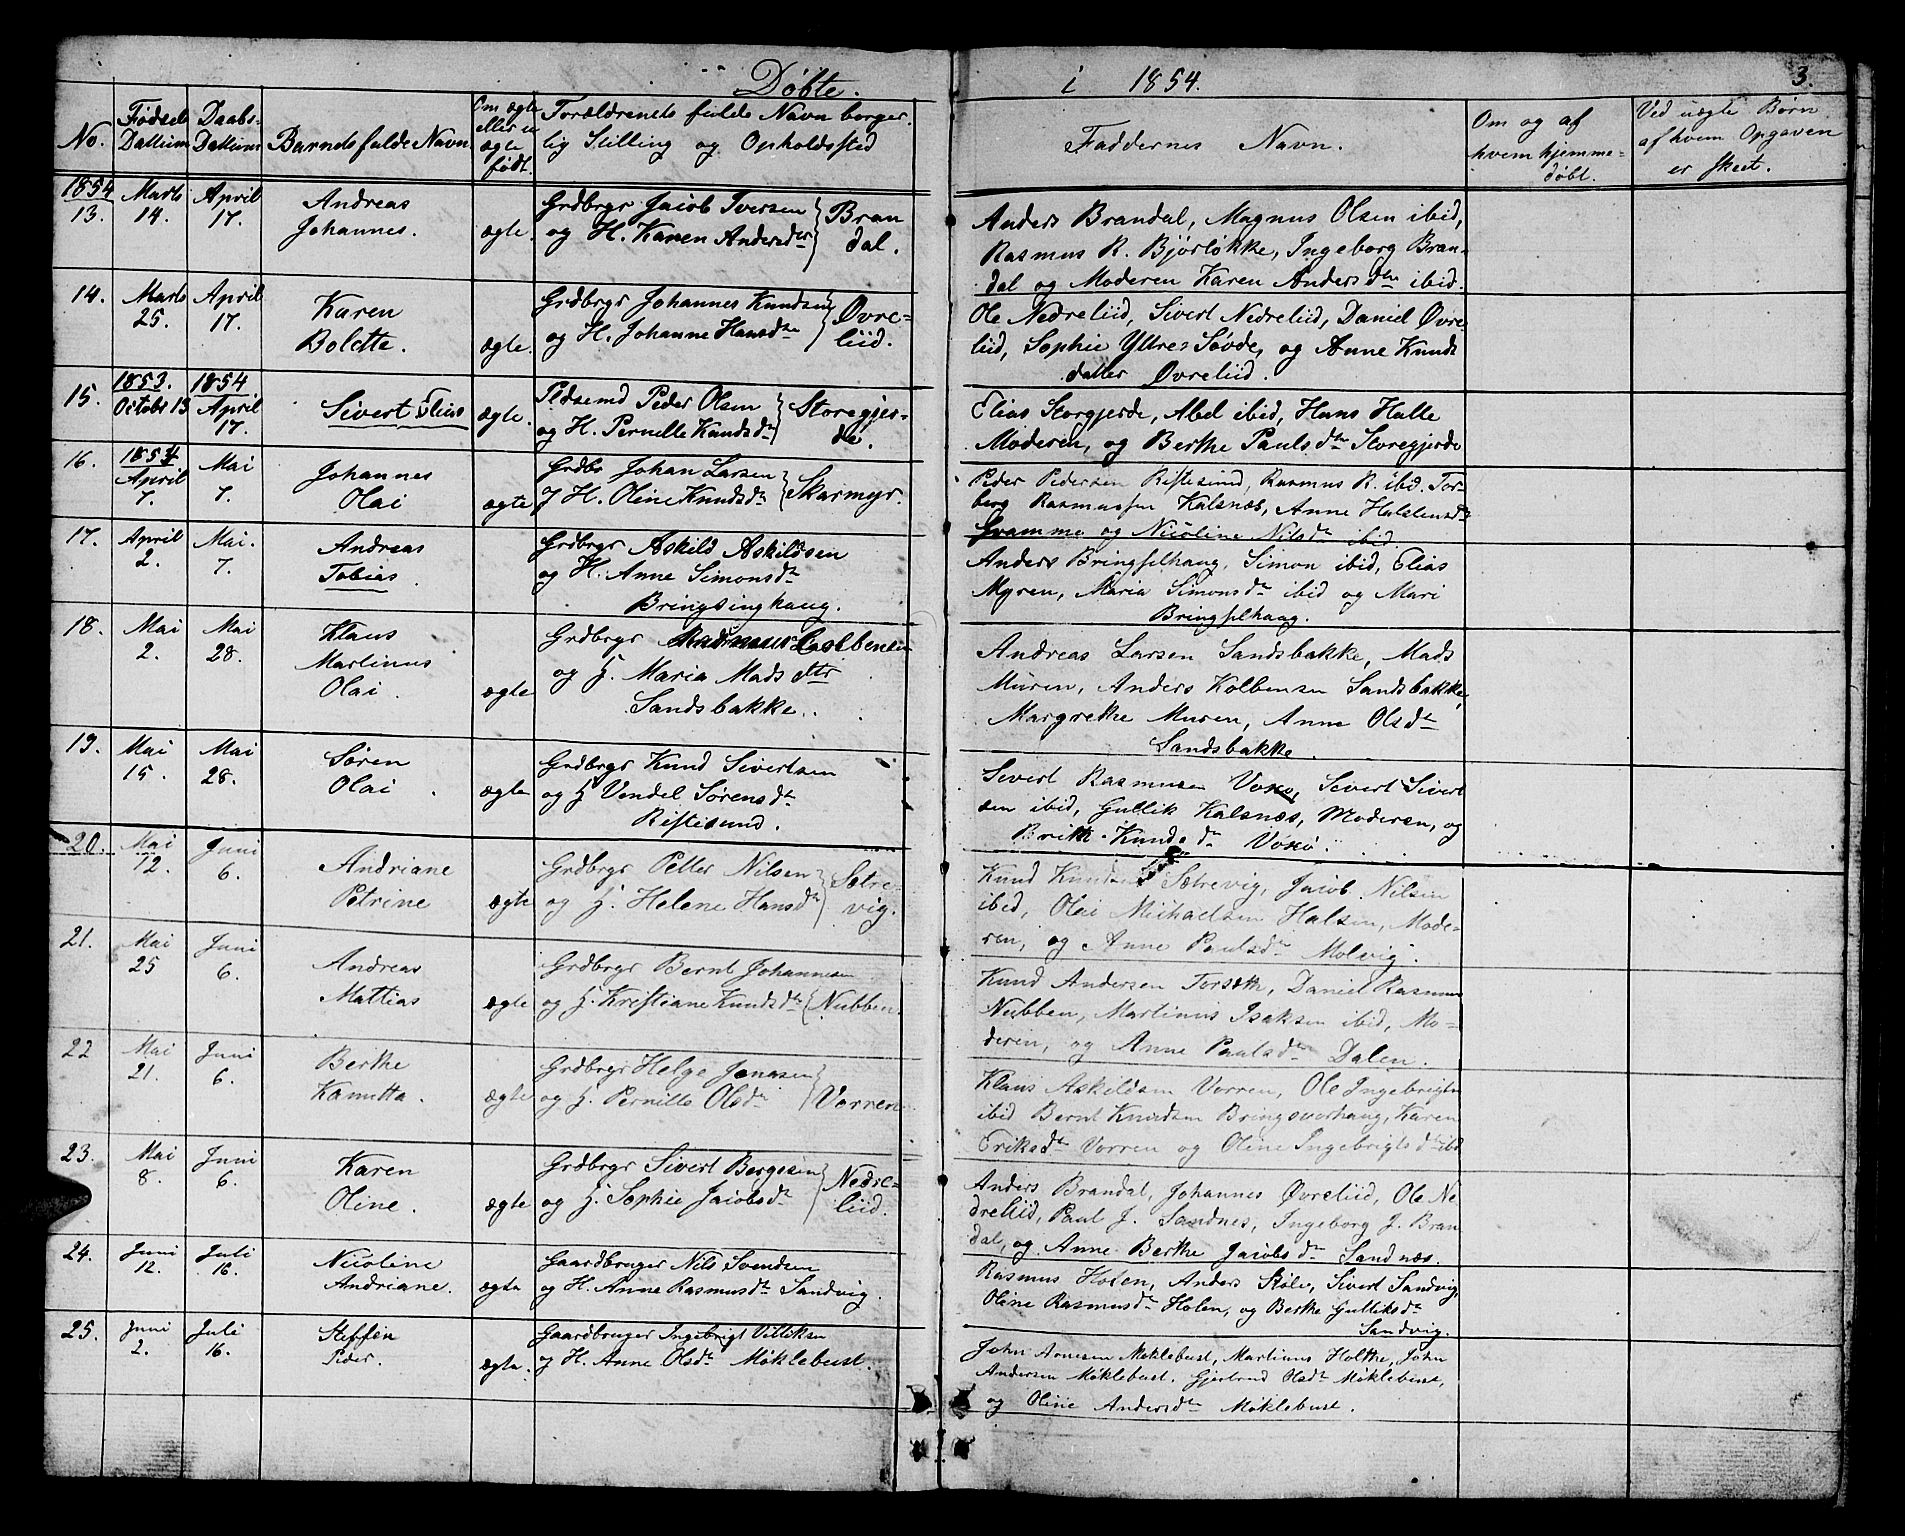 Døbte. i 1854. 3.
No. Fødsels Dattum Daabs- Dattum Barnets fulde Navn Om ægte eller u ægte født. Forældrenes fulde Navn borger- lig Stilling og Opholdssted Faddernes Navn. Om og af hvem hjemme- døbt. Ved uægte Børn af hvem Opgaven er skeet.
1854 Marts April Andreas Grdbrgr Jacob Iversen Bran Anders Brandal, Magnus Olsen ibid,
13. 14. 17. Johannes. ægte. og H. Karen Andersdtr dal. Rasmus R. Bjørløkke, Ingeborg Bran-
dal og Moderen Karen Andersdtr ibid.
14. Marts April Karen Grdbrgr Johannes Knudsen Øvre- Ole Nedreliid, Sivert Nedreliid, Daniel Øvre
25. 17. Bolette. ægte. og H. Johanne Hansdtr liid. liid, Sophie Yttres Søvde, og Anne Knuds
datter Øvreliid.
15. 1853. 1854 Sivert Elias ægte. Pladsemd Peder Olsen Storegjer- Elias Storgjerde, Abel ibid, Hans Halle
Octobr 13 April og H. Pernelle Knudsdtr de. Moderen, og Berthe Paulsdtr Storegjerde
17.
16. 1854 Mai Johannes Grdbr Johan Larsen Skarmyr. Peder Pedersen Riftesund, Rasmus R. ibid. Tor-
April 7. Olai ægte H. Oline Knudsdtr berg Rasmussen Kalsnæs, Anne Halstensdtr
7. Gramme og Nicoline Nilsdtr ibid.
17. April Mai. Andreas Grdbrgr Askild Askildsen Anders Bringselhaug, Simon ibid, Elias
2. 7. Tobias. og H. Anne Simonsdtr Myren, Maria Simonsdtr ibid og Mari
Bringsinghaug. Bringselhaug.
18. Mai Mai Klaus Grdbrgr Kolbensen Andreas Larsen Sandsbakke, Mads
2. 28. Martinus og H. Maria Mads dtr Muren, Anders Kolbensen Sandsbakke,
Olai. ægte Sandsbakke. Margrethe Muren, Anne Olsdtr
Sandsbakke.
19. Mai Mai Søren Grdbrgr Knud Sivertsen Sivert Rasmusen Voxø, Sivert Sivert
15. 28. Olai ægte og H Vendel Sørensdtr sen ibid, Gullik Kalsnæs, Moderen, og
Riftesund. Brithe Knudsdtr Voxø.
20. Mai Juni Andriane Grdbrgr Petter Nilsen Sætre- Knud Knudsen Sætrevig, Jacob Nilsen
12. 6. Petrine ægte og H. Helene Hansdtr vig. ibid, Olai Michaelsen Halsen, Mode-
ren, og Anne Paulsdtr Molvig.
21. Mai Juni Andreas Grdbrgr Bernt Johannesen Knud Andersen Torseth, Daniel Rasmus
25 6. Mattias ægte og H. Kristiane Knudsdtr Nubben. Nubben, Martinus Isaksen ibid, Mo-
deren, og Anne Paulsdtr Dalen.
22 Mai Juni Berthe Grdbrgr Helge Jonasen Klaus Askildsen Vorren, Ole Ingebrigtsen
21. 6. Kanutta. ægte og H. Pernille Olsdtr Vorren ibid Bernt Knudsen Bringsvorhaug, Karen
Eriksdtr Vorren og Oline Ingebrigtsdtr ibid
23. Mai Juni Karen Grdbrgr Sivert Bergesen Nedre- Anders Brandal, Johannes Øvreliid, Ole Ne
8. 6. Oline. ægte og H. Sophie Jacobsdtr liid. dreliid, Paul J. Sandnes, Ingeborg J. Bran
dal, og Anne Berthe Jacobsdtr Sandnæs.
24. Juni Juli Nicoline Gaardbruger Nils Svendsen Rasmus Holen, Anders Støle, Sivert Sandvig,
12. 16. Andriane. ægte og H. Anne Rasmusdtr Sandvig. Oline Rasmusdtr Holen, og Berthe Gulliksdtr
Sandvig.
25. Juni Juli Steffen Gaardbruger Ingebrigt Villiksen John Arnesen Møklebust, Martinus Holthe, John
2. 16. Peder. ægte. og H. Anne Olsdtr Møklebust. Andersen Møklebust, Gjertrud Olsdtr Møklebust,
og Oline Andersdtr Møklebust.